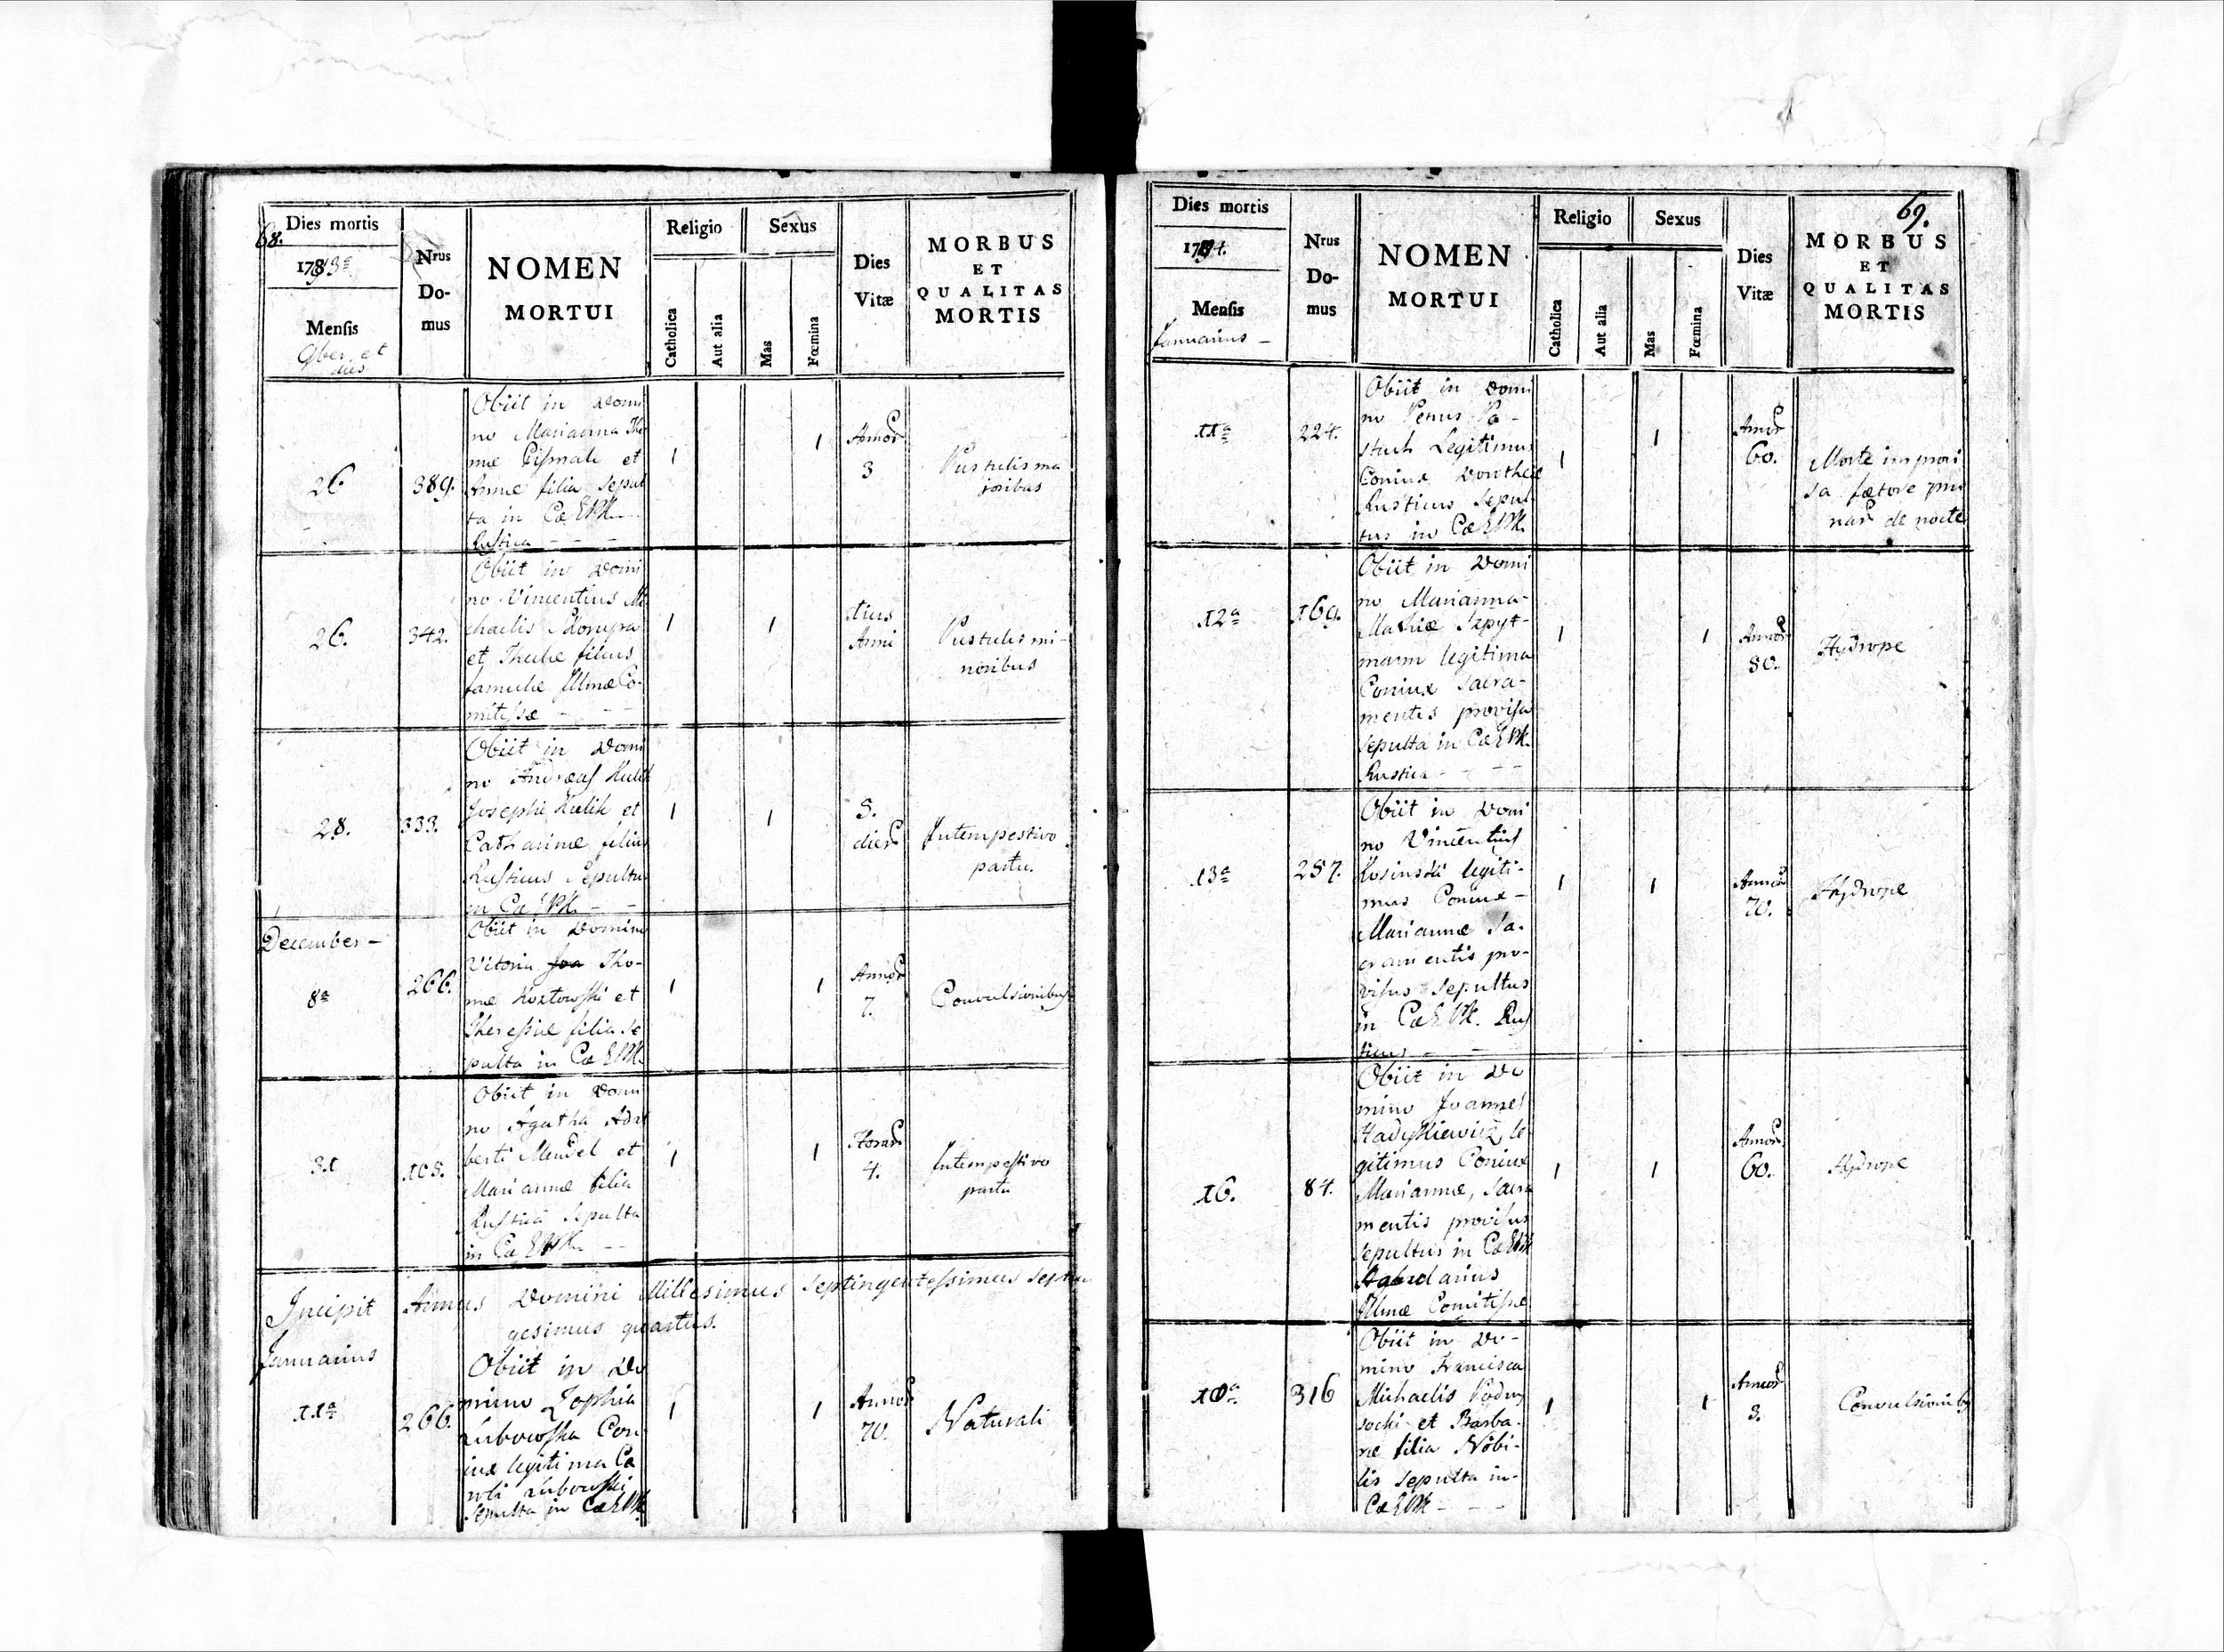 68.
Dies mortis
1793ª
Mensis
9ber et
dies
Nrus
Do-
mus
NOMEN
MORTUI
Religio
Catholica
Aut alia
Sexus
Mas
Fœmina
Dies
Vitæ
MORBUS
ET
QUALITAS
MORTIS
26
389.
Obiit in Domi
no Marianna Tho
mæ et
Annæ filia Sepul
ta in Cæ
Rustica - - -
1
1
Annor
3
Pustulis ma
joribus
26.
342.
Obiit in Domi
no Vincentius Mi
chaelis Skorupa
et Theclæ filius
famulæ Illmæ Co-
mitissæ - - -
1
1
tius
Anni
Pustulis mi-
noribus
28.
333.
Obiit in Domi
no Andreas Kulik
Josephi Kulik et
Catharinæ filius
Rusticus Sepultus
in Cæ
1
1
5.
dier
Intempestivo
partu.
December -
8ª
266.
Obiit in Domino
Vitoria Tho-
mæ Kozłowski et
Theressiæ filia Se
pulta in Cæ
1
1
Annor
7.
Convulsionibus
31
105.
Obiit in Domi
no Agatha Adal
berti Mendel et
Mariannæ filia
Rustica Sepulta
in Cæ
1
1
Horar
4.
Intempestivo
partu
Incipit Annus Domini Millesimus Septingentessimus Septua
gesimus quartus.
Januarius
11ª
266.
Obiit in Do
mino Zophia
Lubowska Con-
iux legitima Ca
roli Lubowski
Sepulta in Cæ
1
1
Annor
70.
Naturali
69.
Dies mortis
1794.
Mensis
Januarius -
Nrus
Do-
mus
NOMEN
MORTUI
Religio
Catholica
Aut alia
Sexus
Mas
Fœmina
Dies
Vitæ
MORBUS
ET
QUALITAS
MORTIS
11ª
224.
Obiit in Domi
no Petrus Pa-
stuch Legitimus
Coniux Dorotheæ
Rusticus Sepul
tus in Cæ
1
1
Annor
60.
Morte improvi
sa fætore
de nocte
12ª
169.
Obiit in Domi
no Marianna-
Mathiæ Szpyt-
mann legitima
Coniux Sacra-
mentis provisa
Sepulta in Cæ
Rustica - - -
1
1
Annor
80.
Hydrope
13ª
257.
Obiit in Domi
no Vincentius
Kosinski legiti-
mus Coniux -
Mariannæ Sa-
cramentis pro-
visus Sepultus
in Cæ Rus
ticus - -
1
1
Annor
70.
Hydrope
16.
84.
Obiit in Do
mino Joannes
Hadyskiewicz le
gitimus Coniux
Mariannæ, Sacra
mentis provisus
Sepultus in Cæ
Illmæ Comitissæ
1
1
Annor
60.
Hydrope
10ª
316
Obiit in Do-
mino Francisca
Michaelis Podwy
socki et Barba-
ræ filia Nobi-
lis Sepulta in-
Cæ
1
1
Annor
3.
Convulsionibus